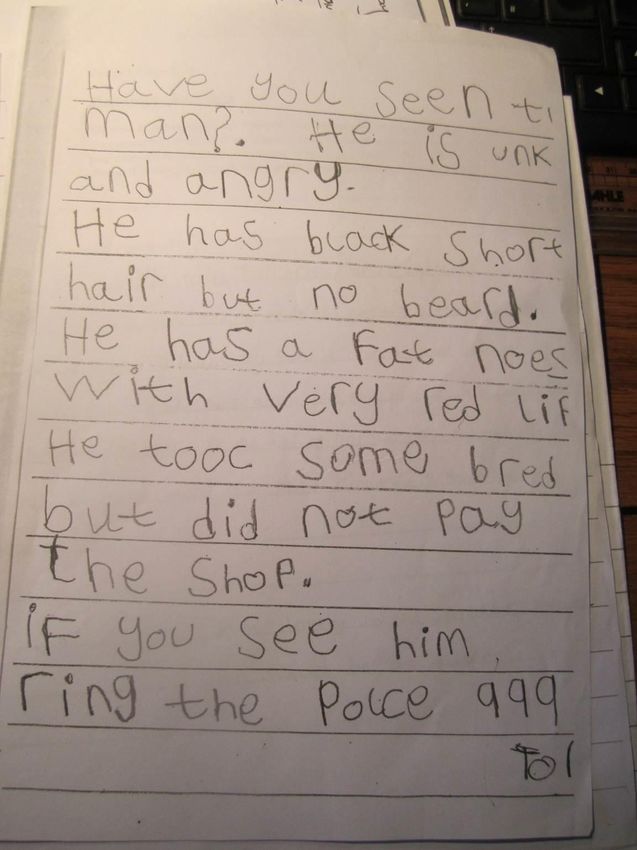 Have you seen
man?. He is unk
and angry.
He has black short
hair but no beard.
He has a Fat noes
With Very red
He tooc Some bred
but did not Pay
the ShoP.
iF you See him
ring the Polce 999